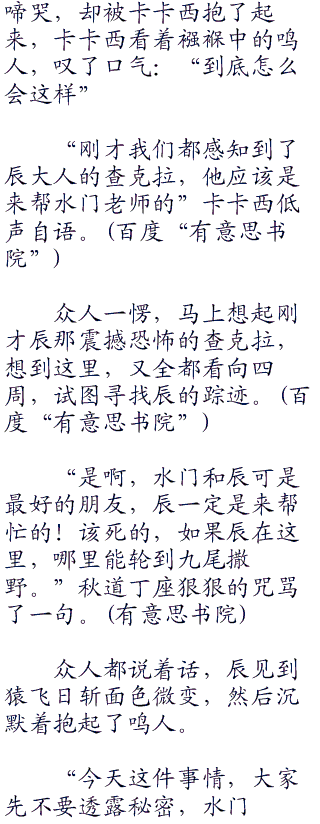 啼哭，却被卡卡西抱了起
来，卡卡西看着襁褓中的鸣
人，叹了口气：“到底怎么
会这样”
“刚才我们都感知到了
辰大人的查克拉，他应该是
来帮水门老师的”卡卡西低
声自语。(百度“有意思书
院”)
众人一愣，马上想起刚
才辰那震撼恐怖的查克拉，
想到这里，又全都看向四
周，试图寻找辰的踪迹。(百
度“有意思书院”)
“是啊，水门和辰可是
最好的朋友，辰一定是来帮
忙的！该死的，如果辰在这
里，哪里能轮到九尾撒
野。”秋道丁座狠狠的咒骂
了一句。(有意思书院)
众人都说着话，辰见到
猿飞日斩面色微变，然后沉
默着抱起了鸣人。
“今天这件事情，大家
先不要透露秘密，水门